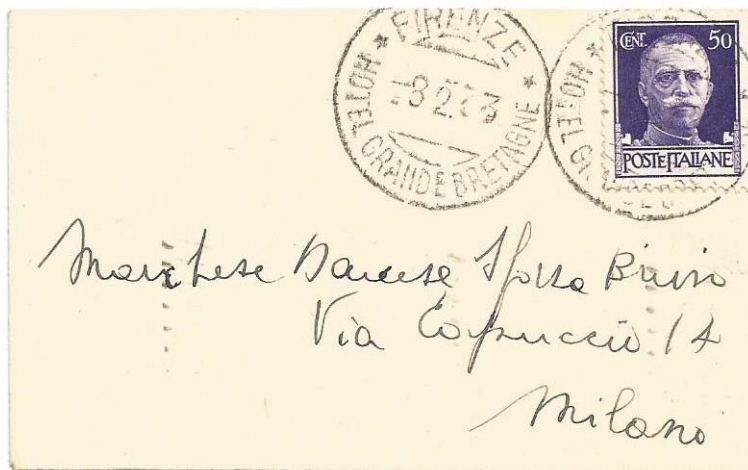 FIRENZE
HOTEL GRANDE BRETAGNE
CENT. 50
POSTE ITALIANE
HOTEL G
Marchese Sforza Brivio
Via Capuccio 14
Milano